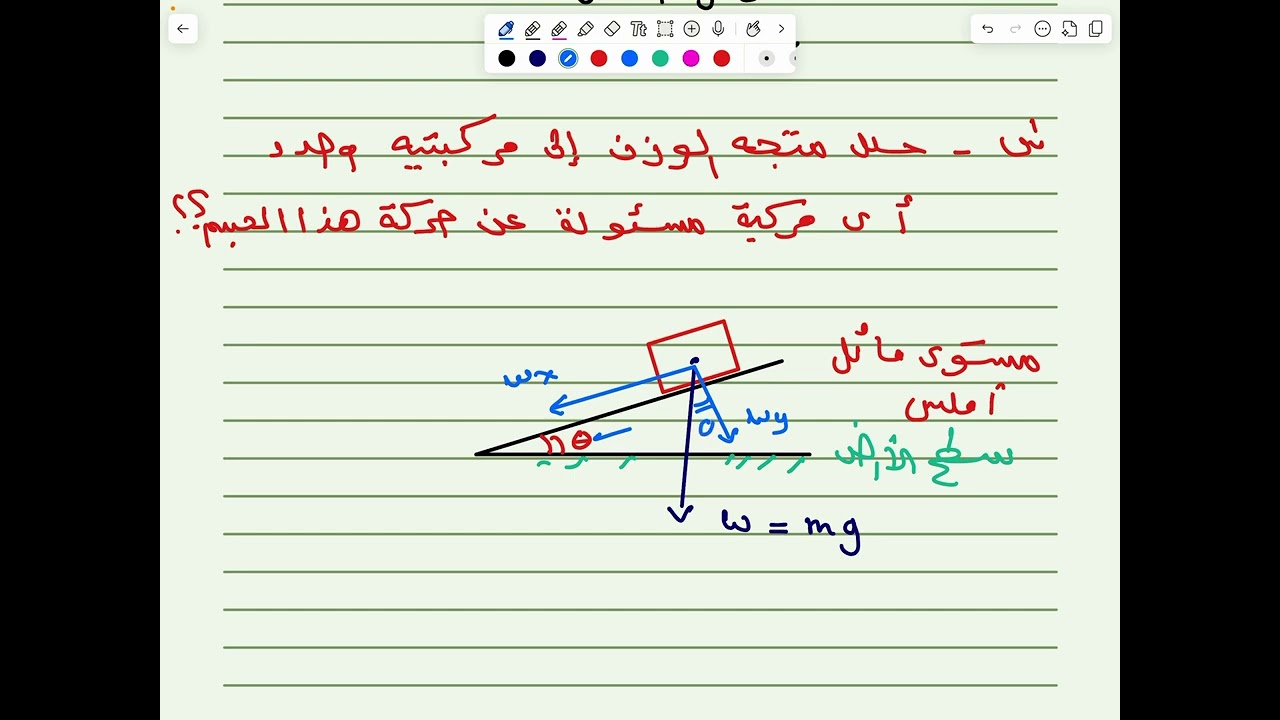 س - حلل متجه الوزن إلى مركبتيه وحدد
أى مركبة مسئولة عن حركة هذا الجسم؟؟
مستوى مائل
أملس
سطح الأرض
wx
wy
θ
θ
w = mg
Tt